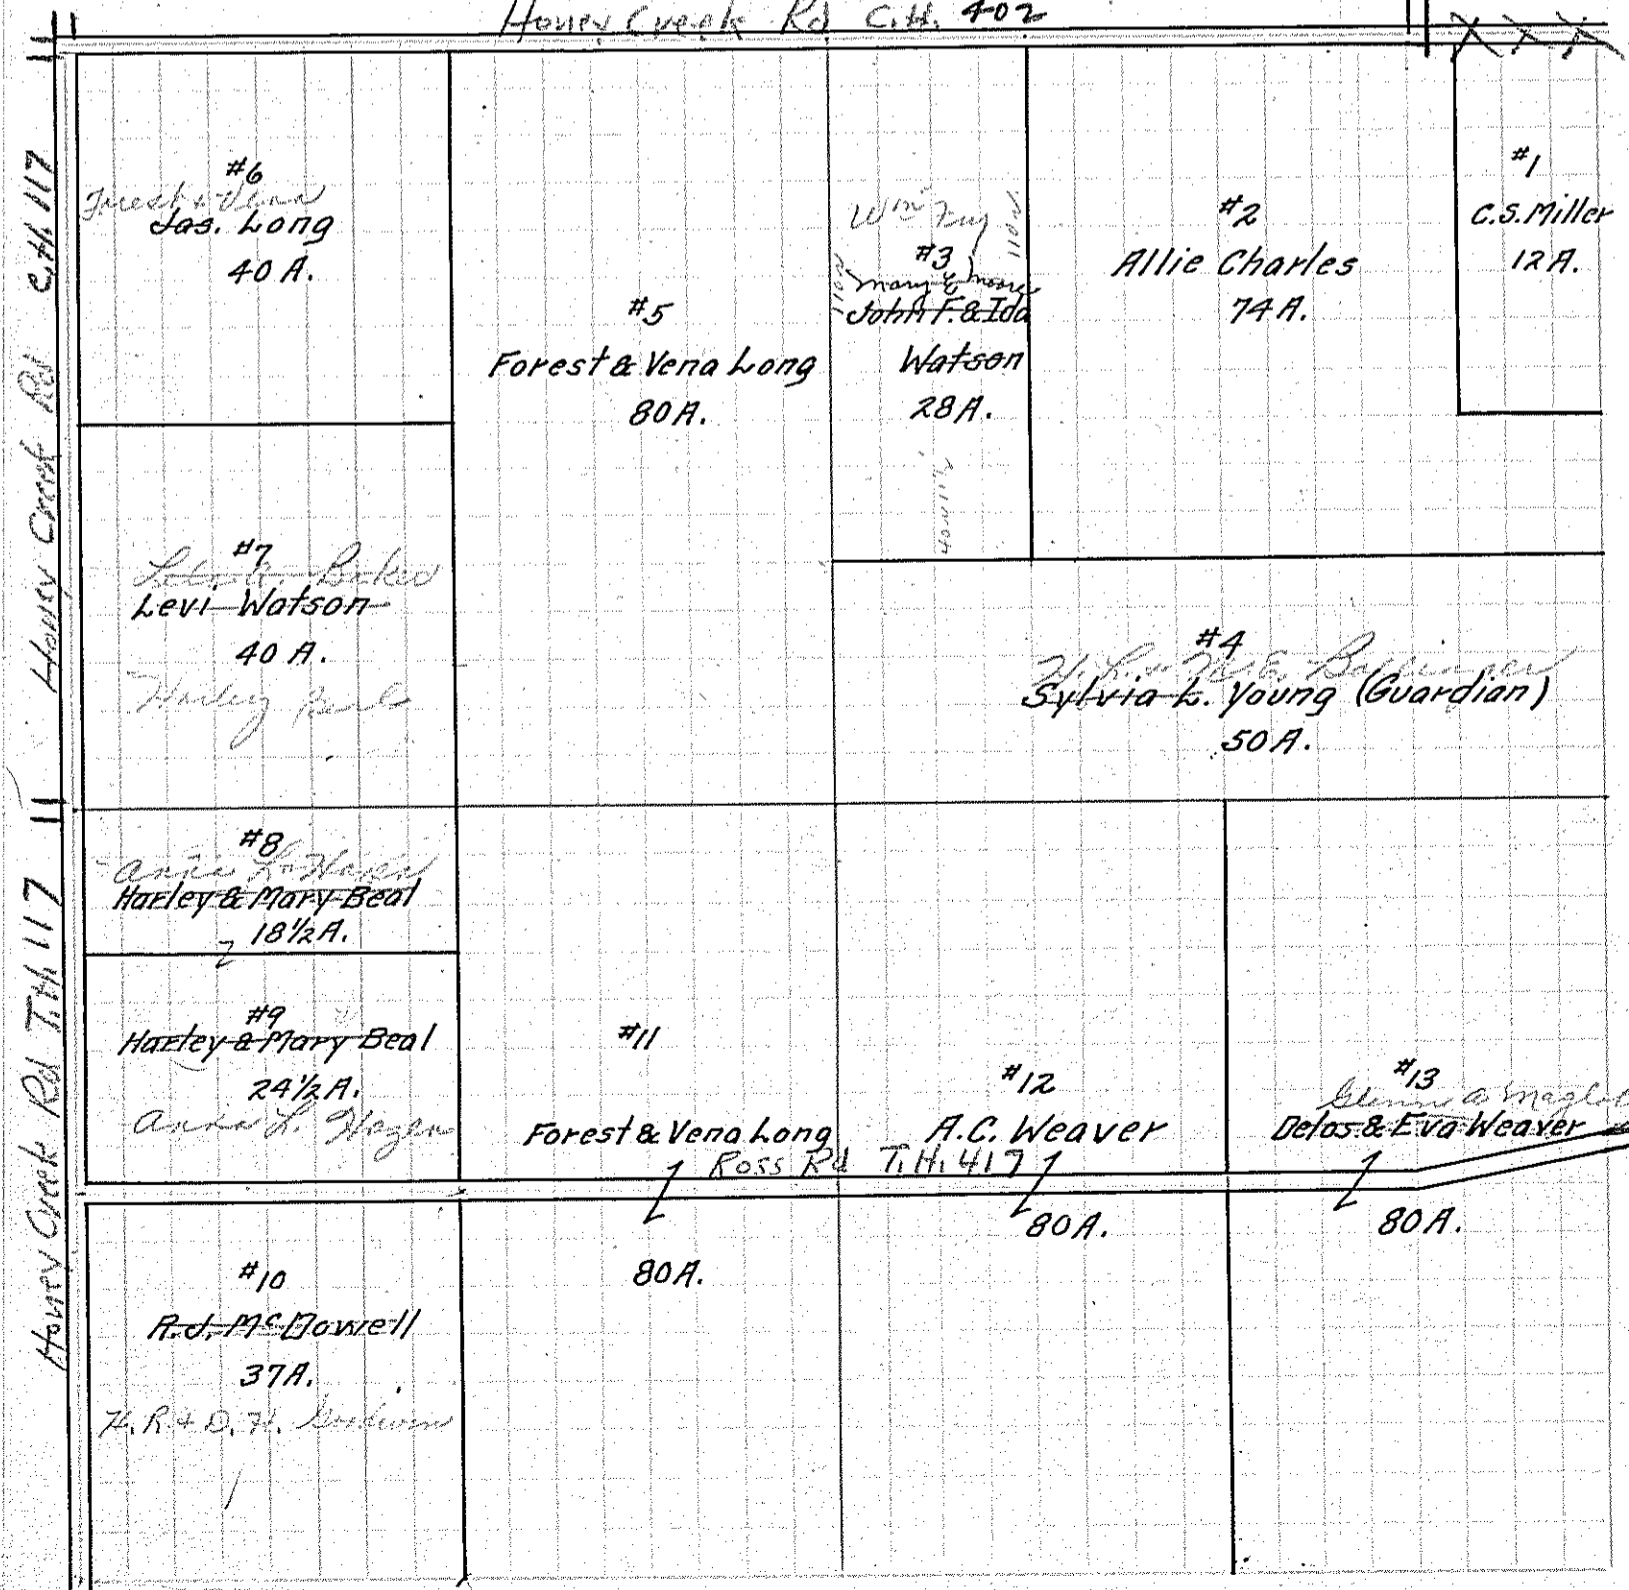 Honey Creek Rd C.H. 402
Honey Creek Rd C.H. 117
Honey Creek Rd T.H. 117
#6
Jas. Long
40 A.
#5
Forest & Vena Long
80 A.
Wm
110 N
110 N
#3
Mary E Moore
John F. & Ida
Watson
28 A.
#2
Allie Charles
74 A.
#1
C.S. Miller
12 A.
#7
Baker
Levi Watson
40 A.
Harley Beal
#4
Sylvia L. Young (Guardian)
50 A.
#8
Anna L. Hazen
Harley & Mary Beal
18 1/2 A.
#9
Harley & Mary Beal
24 1/2 A.
Anna L. Hazen
#11
Forest & Vena Long
80 A.
#12
A.C. Weaver
80 A.
#13
Glenn A
Delos & Eva Weaver
80 A.
Ross Rd T.H. 417
#10
R.J. McDowell
37 A.
H. R. & D. H.